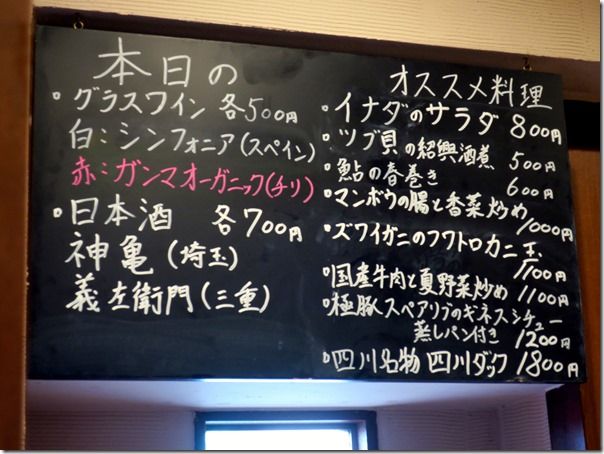 本日の
・グラスワイン 各500円
白:シンフォニア(スペイン)
赤:ガンマオーガニック(チリ)
・日本酒 各700円
神亀(埼玉)
義左衛門(三重)
オススメ料理
・イナダのサラダ 800円
・ツブ貝の紹興酒煮 500円
・鮎の春巻き 600円
・マンボウの腸と香菜炒め 1000円
・ズワイガニのフワトロカニ玉 1100円
・国産牛肉と夏野菜炒め 1100円
・極豚スペアリブのギネスシチュー
蒸しパン付き 1200円
・四川名物 四川ダック 1800円